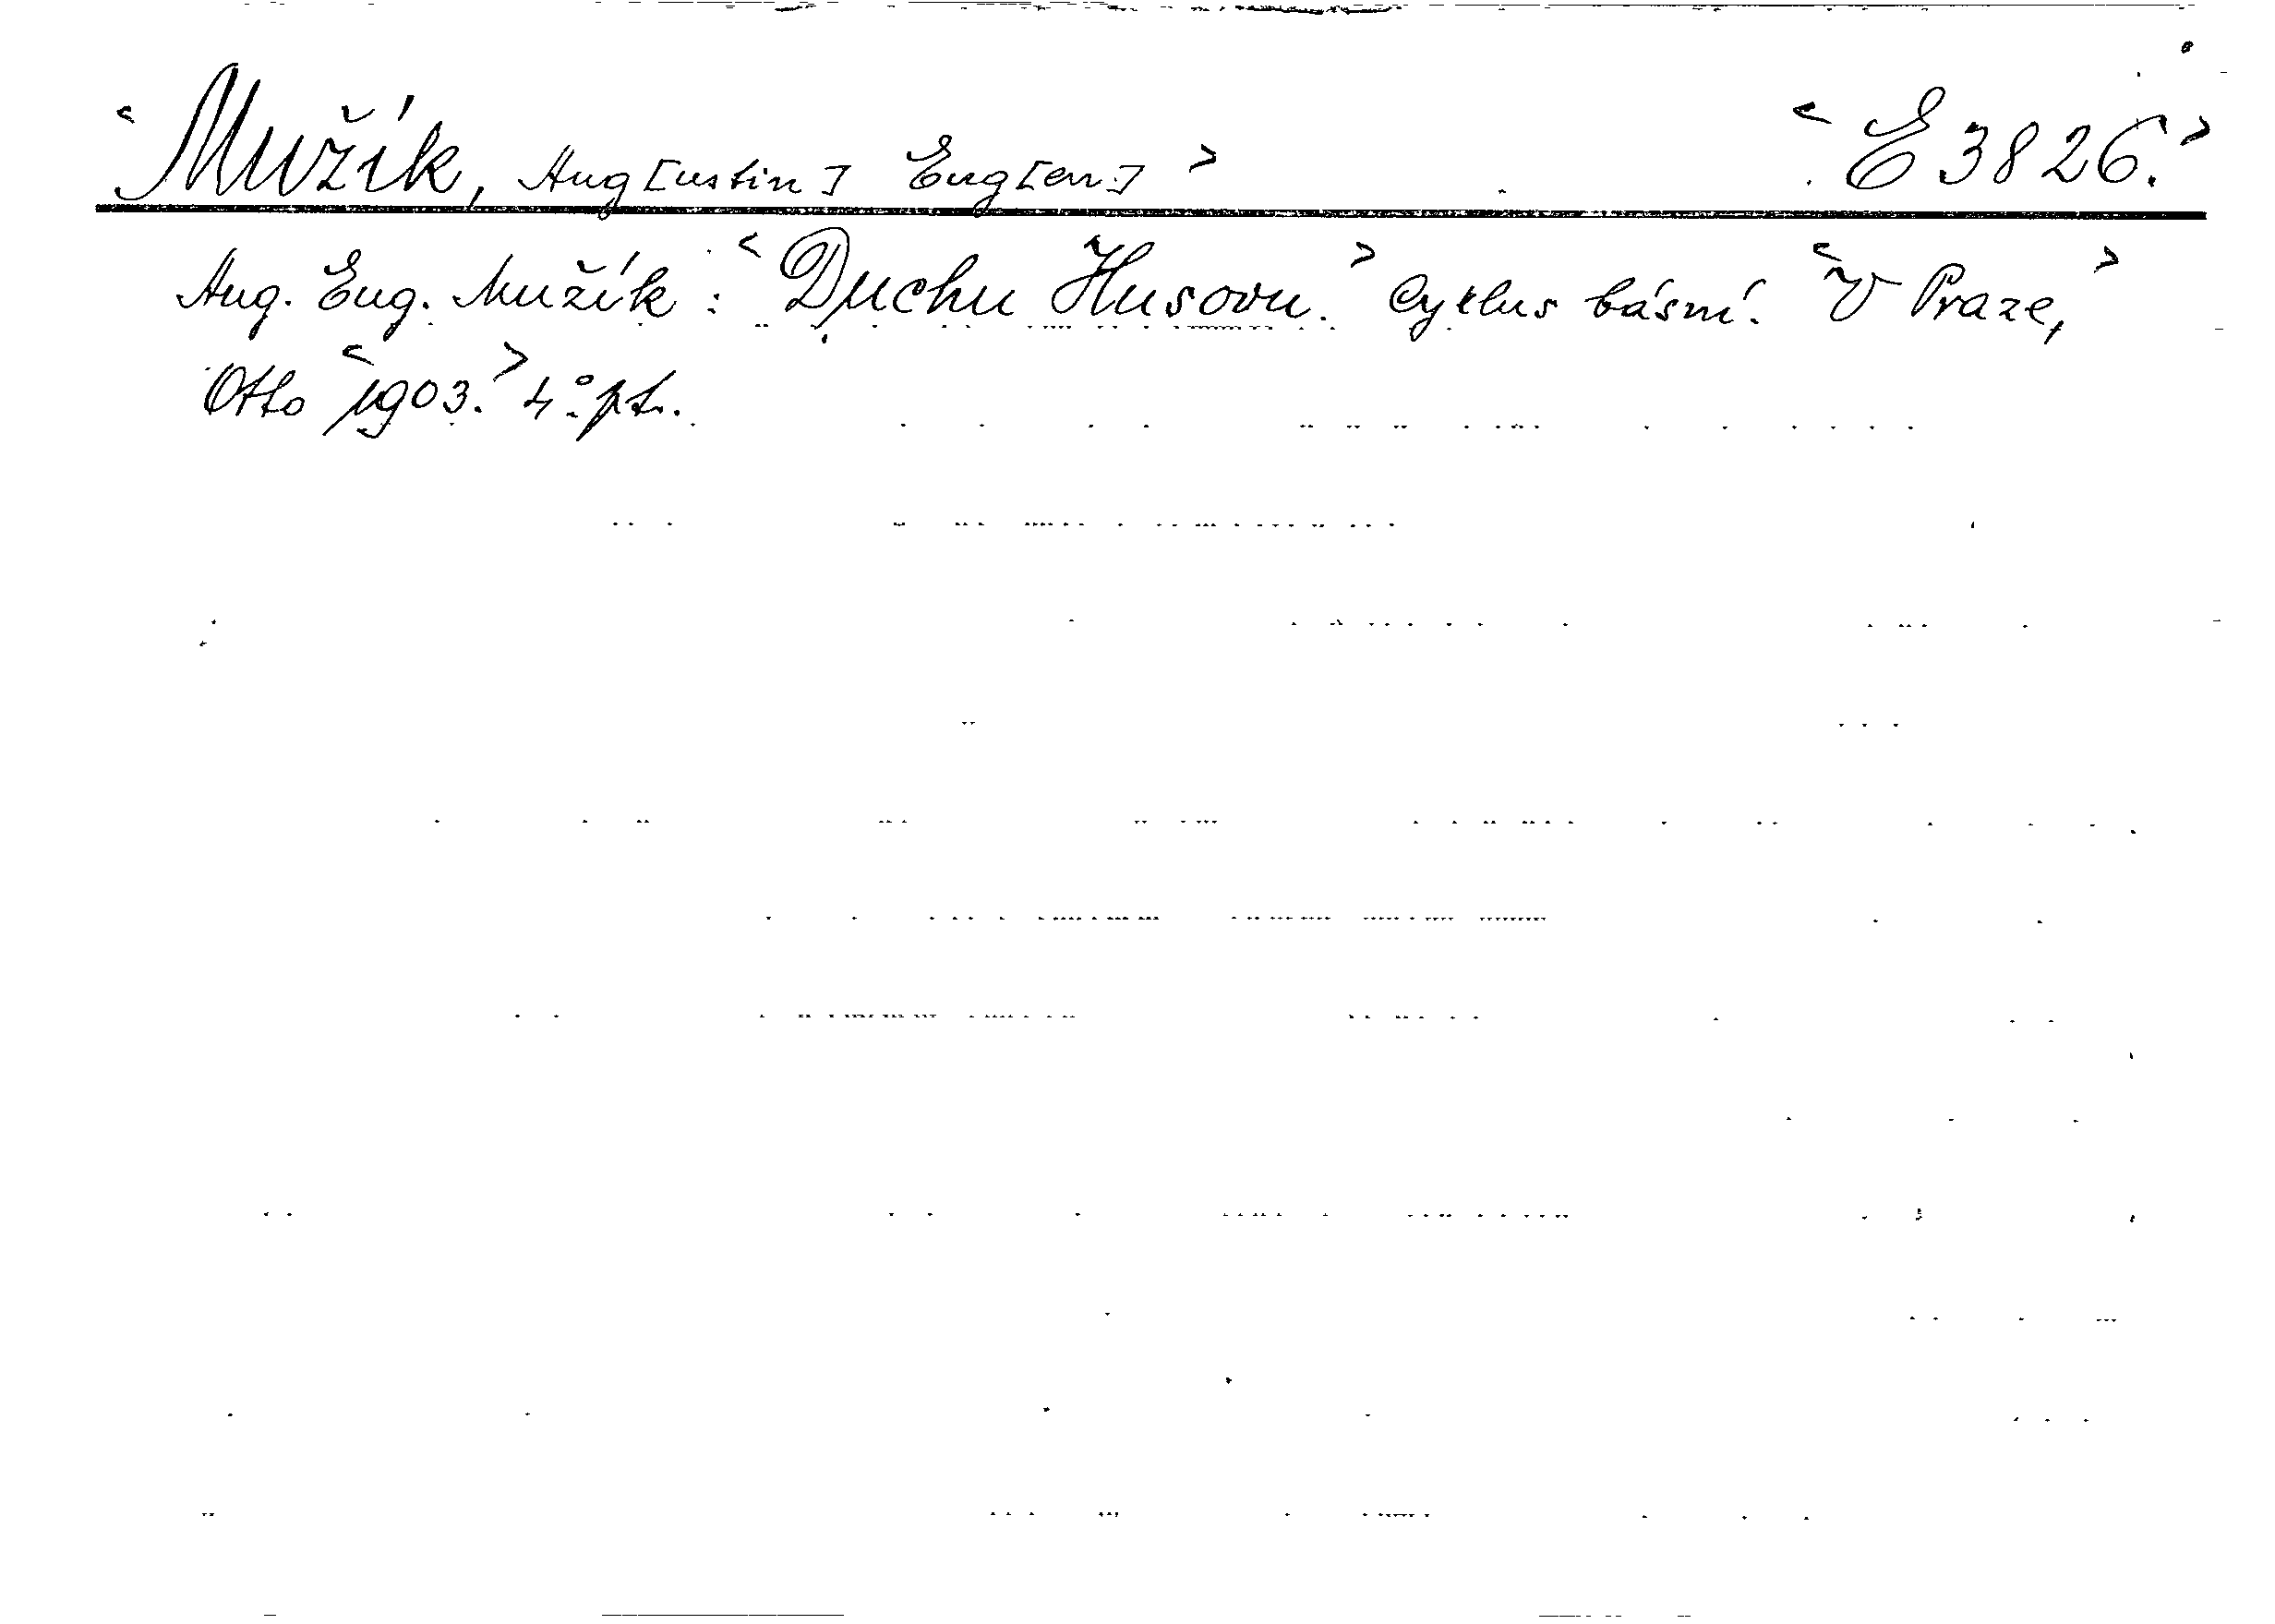 <Mužík, Aug[ustin] Eug[en]> <E 3826.>
Aug. Eug. Mužík: <Duchu Husovu.> Cyklus básní. <V Praze,>
Otto <1903.> 4° pt.